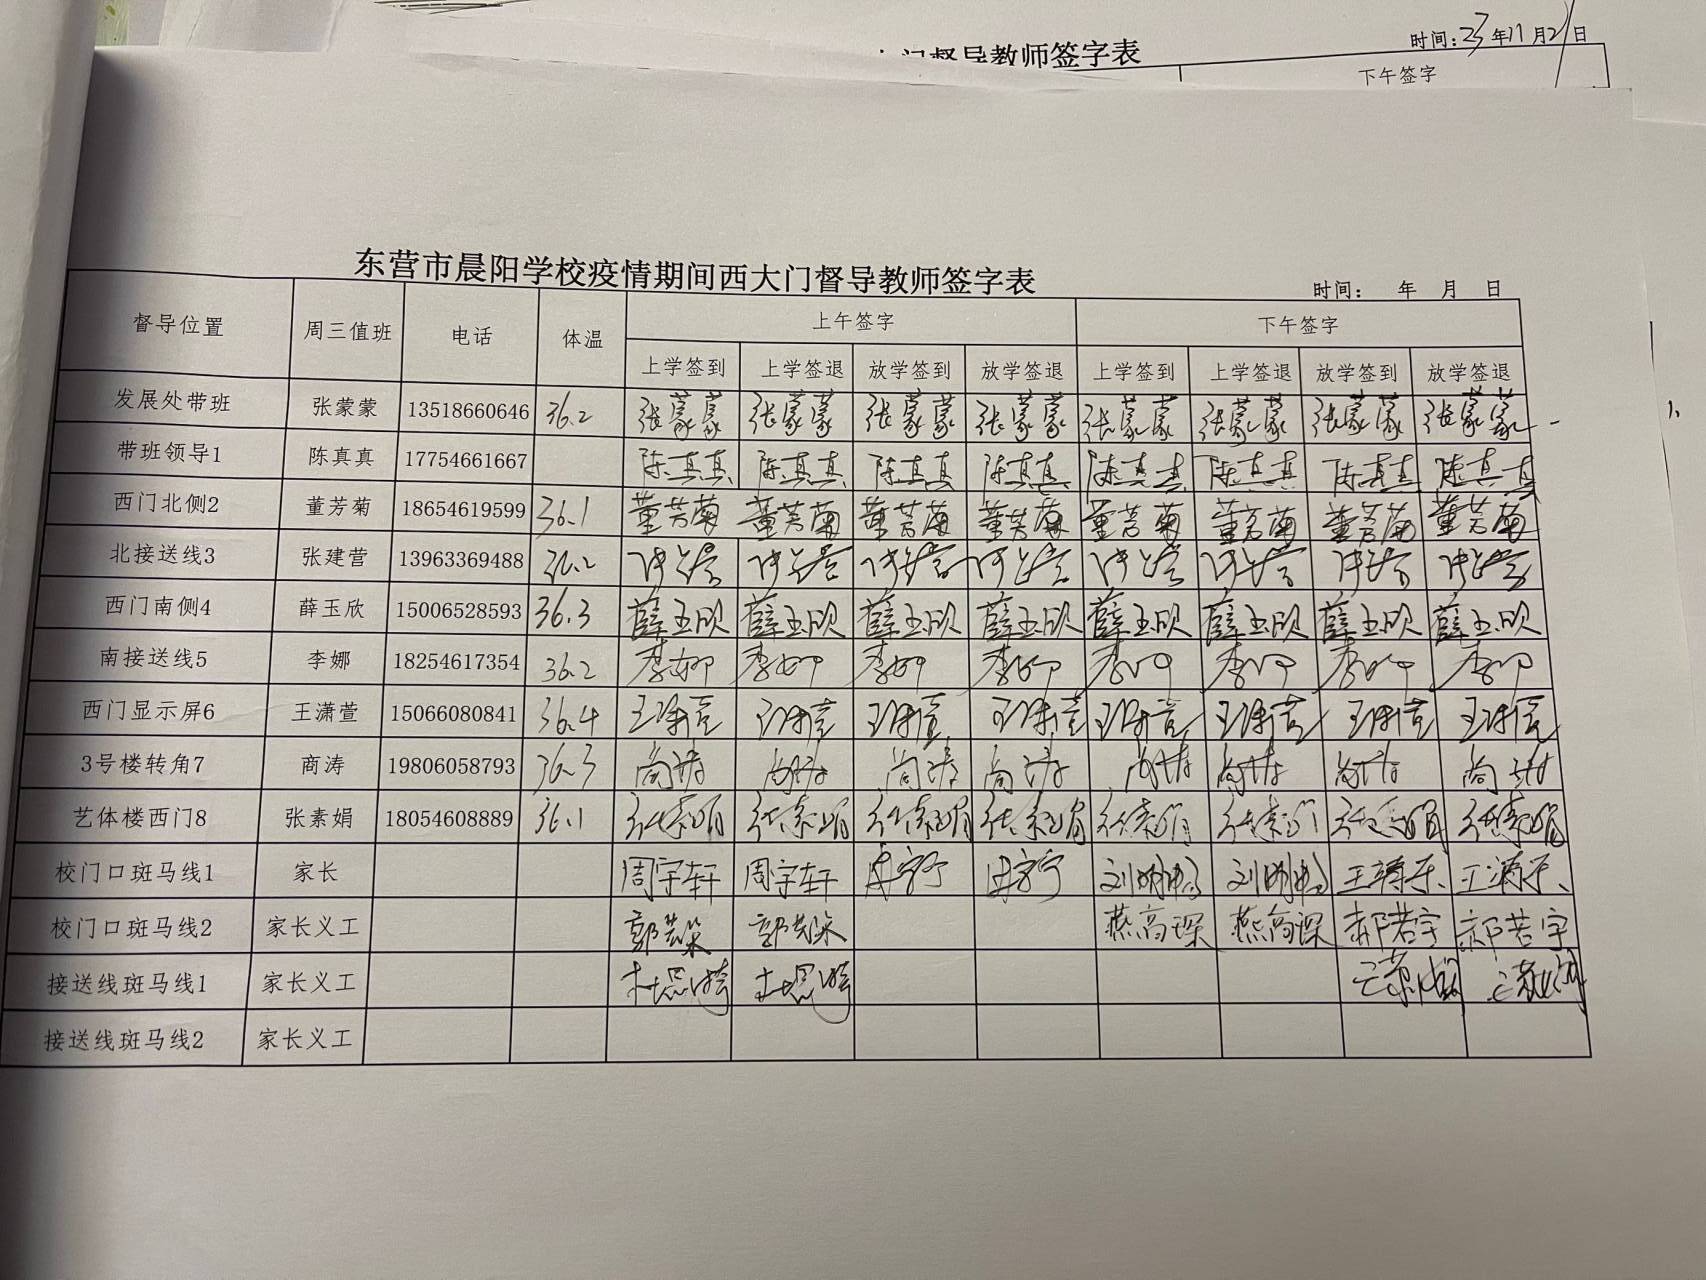 时间:23年11月21日
门督导教师签字表
下午签字
东营市晨阳学校疫情期间西大门督导教师签字表
时间: 年 月 日
督导位置 周三值班 电话 体温 上午签字 下午签字
上学签到 上学签退 放学签到 放学签退 上学签到 上学签退 放学签到 放学签退
发展处带班 张蒙蒙 13518660646 36.2 张蒙蒙 张蒙蒙 张蒙蒙 张蒙蒙 张蒙蒙 张蒙蒙 张蒙蒙 张蒙蒙
带班领导1 陈真真 17754661667 陈真真 陈真真 陈真真 陈真真 陈真真 陈真真 陈真真 陈真真
西门北侧2 董芳菊 18654619599 36.1 董芳菊 董芳菊 董芳菊 董芳菊 董芳菊 董芳菊 董芳菊 董芳菊
北接送线3 张建营 13963369488 36.2
西门南侧4 薛玉欣 15006528593 36.3 薛玉欣 薛玉欣 薛玉欣 薛玉欣 薛玉欣 薛玉欣 薛玉欣 薛玉欣
南接送线5 李娜 18254617354 36.2 李娜 李娜 李娜 李娜 李娜 李娜 李娜 李娜
西门显示屏6 王潇萱 15066080841 36.4 王潇萱 王潇萱 王潇萱 王潇萱 王潇萱 王潇萱 王潇萱 王潇萱
3号楼转角7 商涛 19806058793 36.3 商涛 商涛 商涛 商涛 商涛 商涛 商涛 商涛
艺体楼西门8 张素娟 18054608889 36.1 张素娟 张素娟 张素娟 张素娟 张素娟 张素娟 张素娟 张素娟
校门口斑马线1 家长 周宇轩 周宇轩
校门口斑马线2 家长义工 燕高琛 燕高琛 郝若宇 郝若宇
接送线斑马线1 家长义工
接送线斑马线2 家长义工